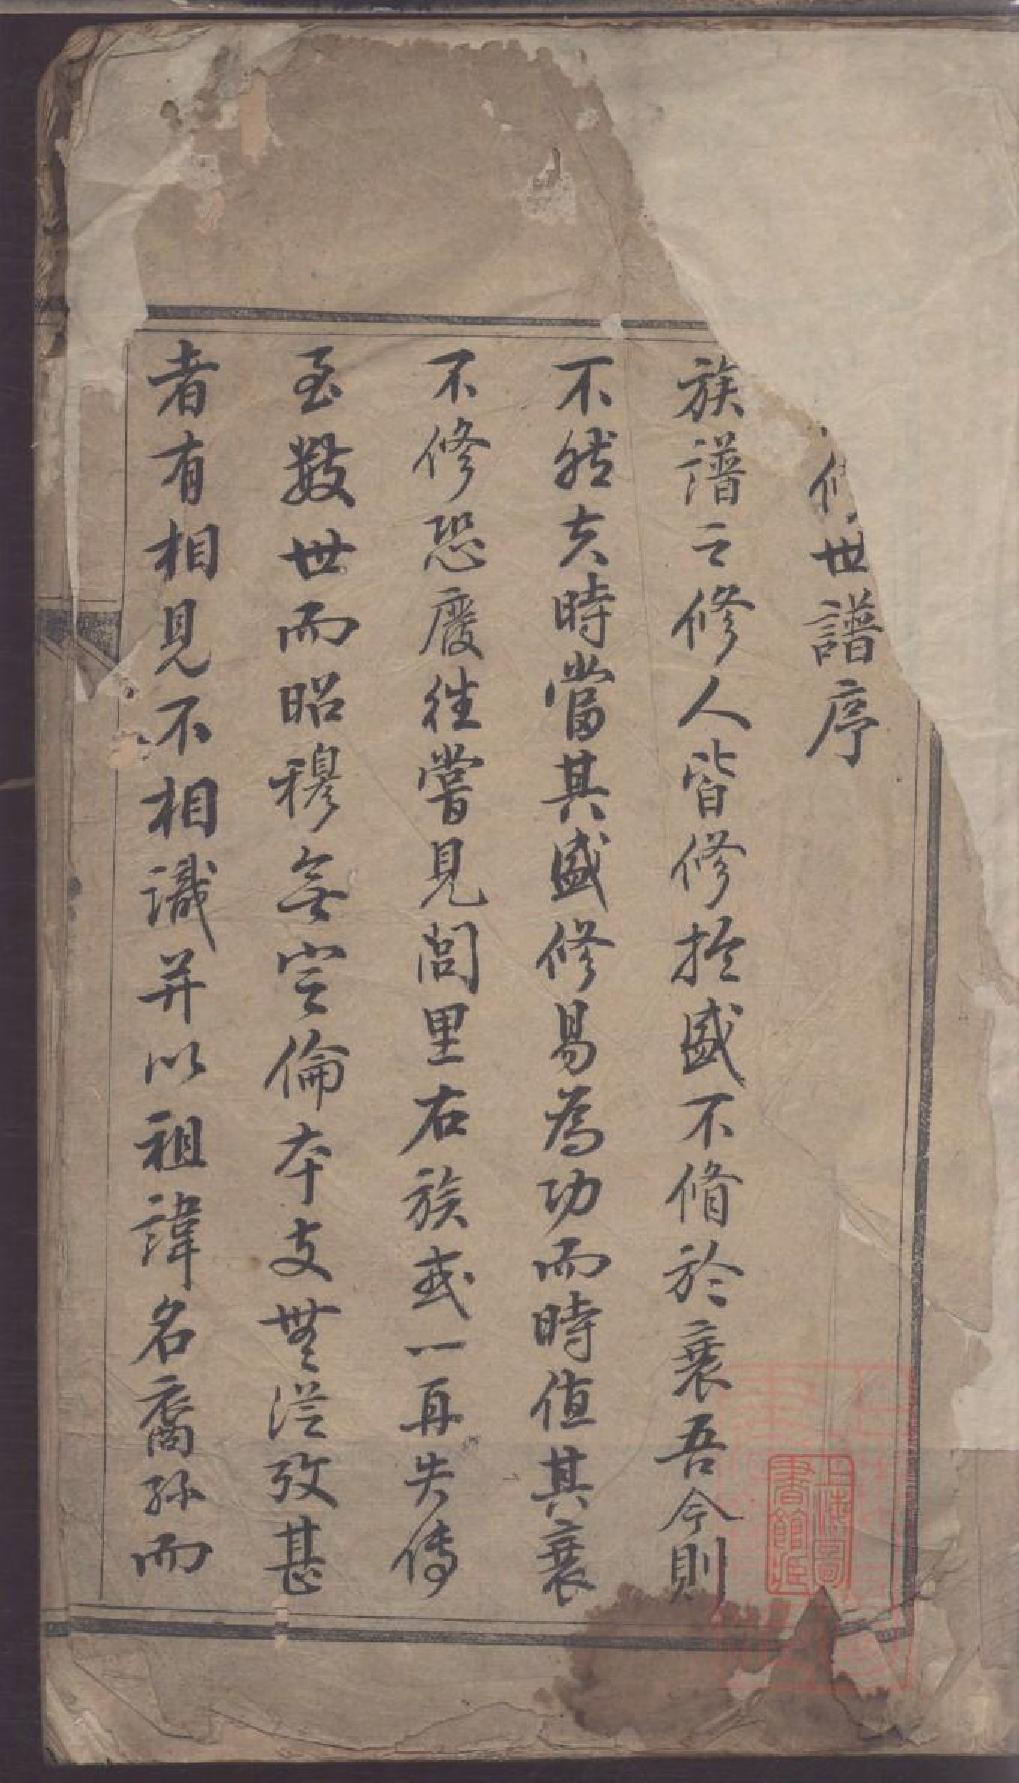 修世譜序
族譜之修人皆修於盛不脩於衰吾今則
不然夫時當其盛修易為功而時值其衰
不修恐廢徃嘗見閭里右族或一再失傳
至數世而昭穆無定倫本支無從攷甚
者有相見不相識并以祖諱名裔孫而
上海圖書館藏